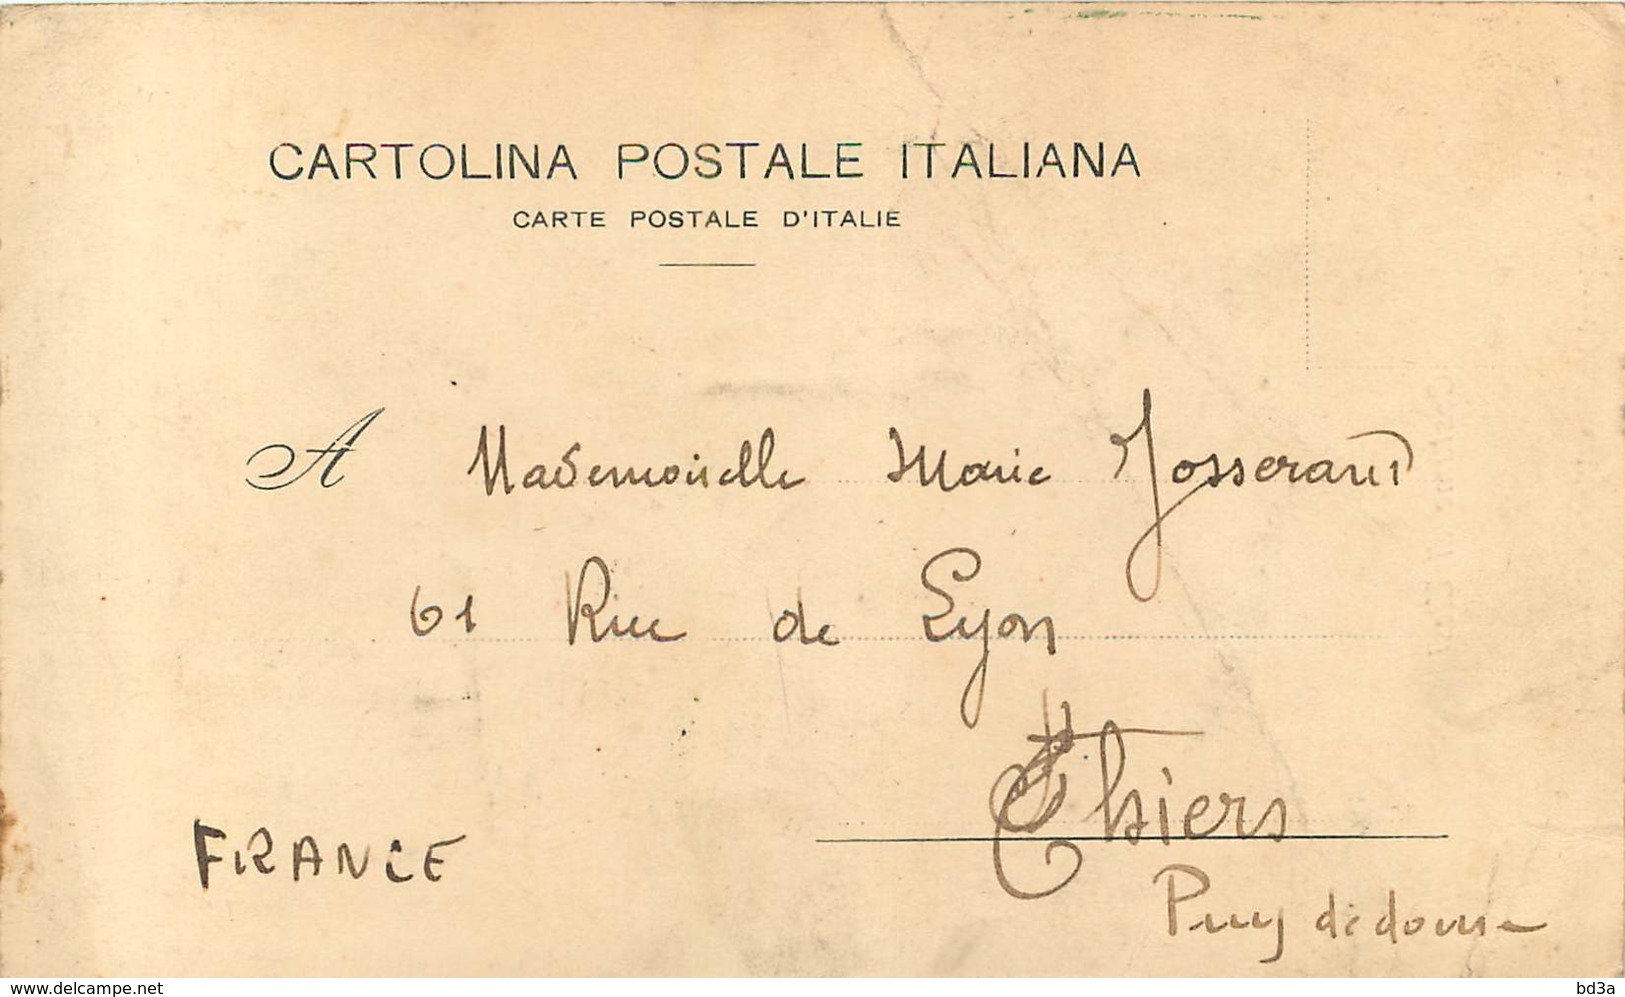 CARTOLINA POSTALE ITALIANA
CARTE POSTALE D'ITALIE
A Mademoiselle Marie Josserand
61 Rue de Lyon
Thiers
FRANCE
Puy de dome
www.delcampe.net
bd3a